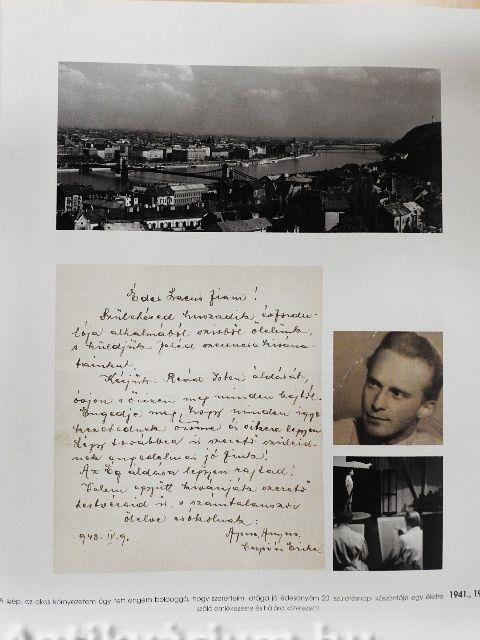 Édes Lacus fiam!
Születésed huszadik évfordu-
lója alkalmából szívből ölelünk,
s küldjük feléd szerencsekívána-
tainkat.
Kérjük Reád Isten áldását,
óvjon s őrizzen meg minden bajtól.
Engedje meg, hogy minden igye-
kezetednek öröme és sikere legyen
Légy továbbra is szerető szüleid-
nek engedelmes jó fiuk!
Az Ég áldása legyen rajtad!
Velem együtt kívánják szerető
testvéreid is, s számtalanszor
ölelve csókolnak:
943. IV. 9.
A szép, az okos környezetem úgy tett engem boldoggá, hogy szeretteim, drága jó édesanyám 20. születésnapi köszöntője egy életre
szóló emlékezésre és hálára kötelezett!
1941., 19